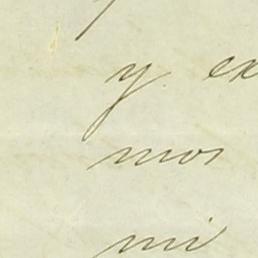 y ex
mos
mi